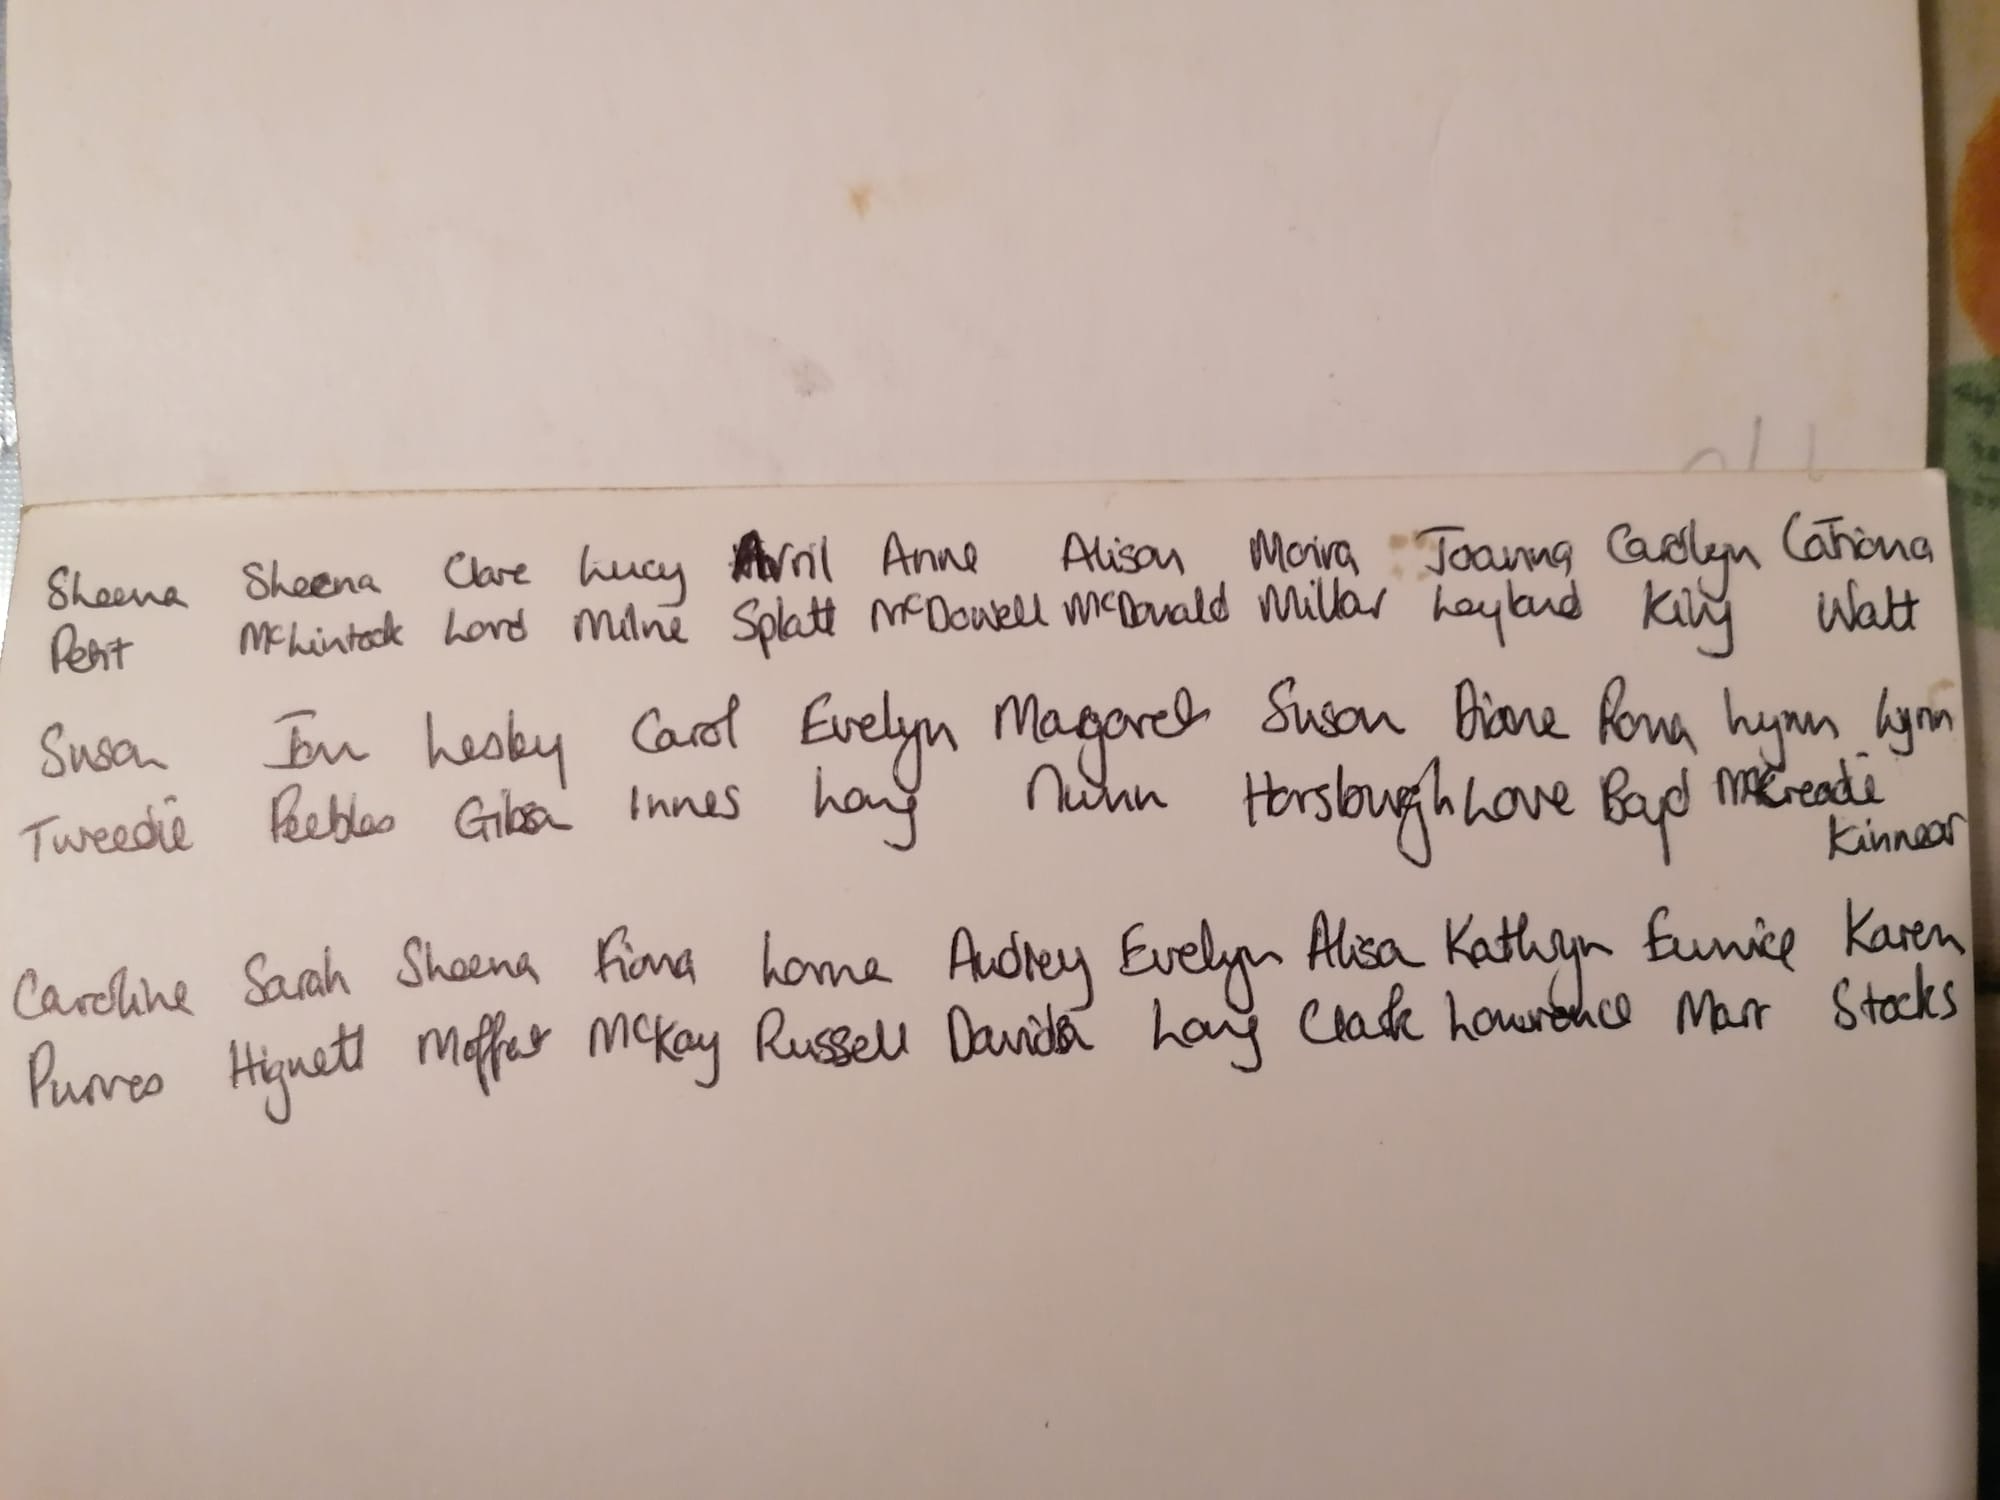 Sheena Sheena Clare Lucy Avril Anne Alison Moira Joanna Carolyn Catriona
Petit McLintock Lord Milne Splatt McDowell McDonald Millar Leyland King Watt
Susan Lesley Carol Evelyn Margaret Susan Diane Rona Lynn Lynn
Tweedie Peebles Gibson Innes Long Nunn Horsbourgh Love Boyd McCreadie
Kinnear
Caroline Sarah Sheena Fiona Lorna Audrey Evelyn Alisa Kathryn Eunice Karen
Purves Hignett Moffat McKay Russell Long Clark Lawrence Marr Stocks